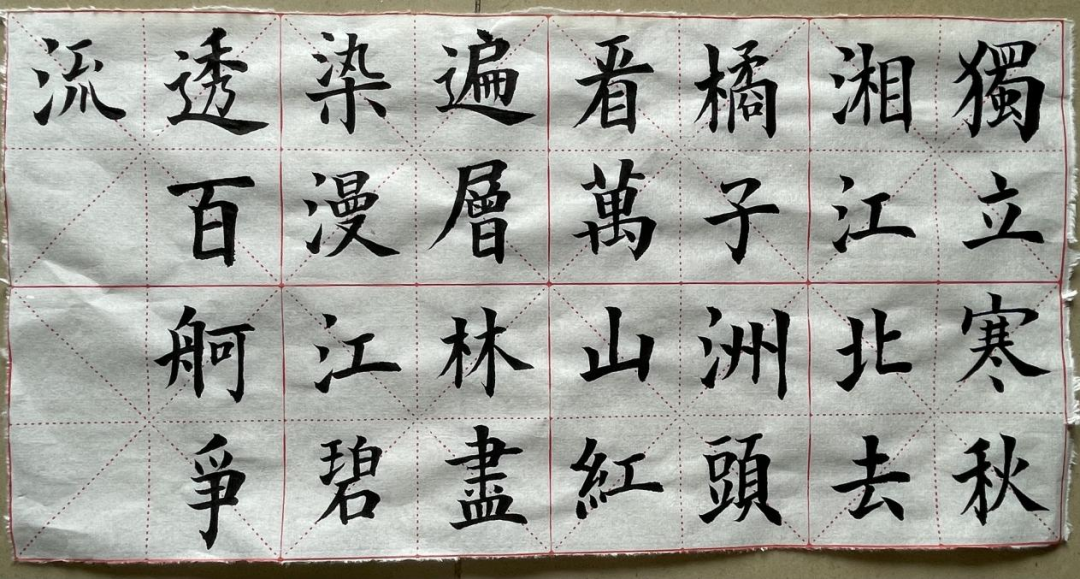 獨立寒秋
湘江北去
橘子洲頭
看萬山紅
遍層林盡
染漫江碧
透百舸爭
流